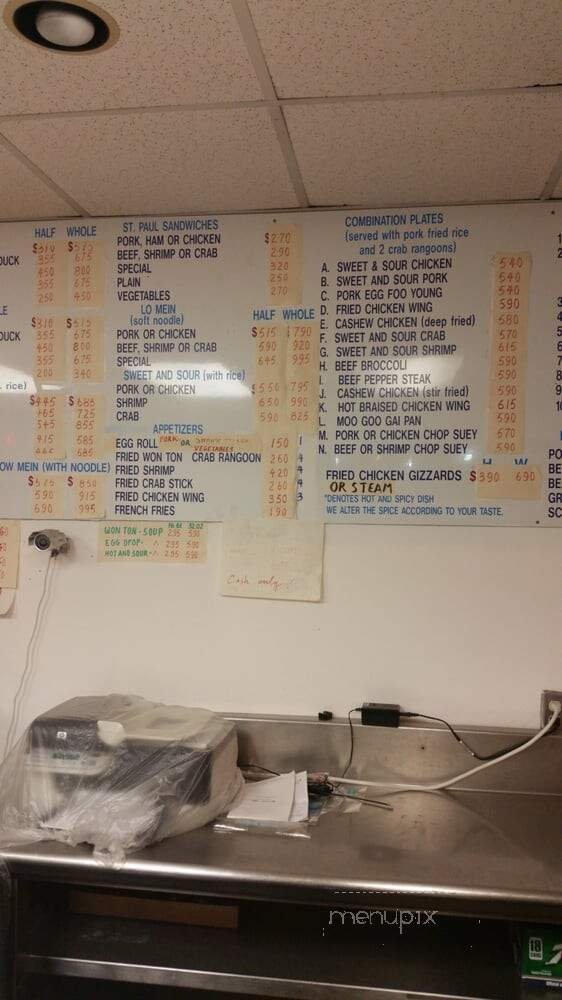 HALF WHOLE
$310 $575
DUCK 355 675
450 800
355 675
250 450
$310 $575
DUCK 355 675
450 800
355 675
200 340
. rice)
$445 $685
465 725
545 855
415 585
445 685
OW MEIN (WITH NOODLE)
$575 $850
590 915
690 995
ST. PAUL SANDWICHES
PORK, HAM OR CHICKEN $270
BEEF, SHRIMP OR CRAB 290
SPECIAL 320
PLAIN 250
VEGETABLES 270
LO MEIN HALF WHOLE
(soft noodle)
PORK OR CHICKEN $515 $790
BEEF, SHRIMP OR CRAB 590 920
SPECIAL 645 995
SWEET AND SOUR (with rice)
PORK OR CHICKEN $550 $795
SHRIMP 650 990
CRAB 590 825
APPETIZERS
EGG ROLL PORK OR VEGETABLES 150
FRIED WON TON CRAB RANGOON 260
FRIED SHRIMP 420
FRIED CRAB STICK 260
FRIED CHICKEN WING 350
FRENCH FRIES 190
COMBINATION PLATES
(served with pork fried rice
and 2 crab rangoons)
A. SWEET & SOUR CHICKEN 540
B. SWEET AND SOUR PORK 540
C. PORK EGG FOO YOUNG 540
D. FRIED CHICKEN WING 590
E. CASHEW CHICKEN (deep fried) 680
F. SWEET AND SOUR CRAB 570
G. SWEET AND SOUR SHRIMP 615
H. BEEF BROCCOLI 590
I. BEEF PEPPER STEAK 590
J. CASHEW CHICKEN (stir fried) 590
K. HOT BRAISED CHICKEN WING 615
L. MOO GOO GAI PAN 590
M. PORK OR CHICKEN CHOP SUEY 570
N. BEEF OR SHRIMP CHOP SUEY 590
H W
FRIED CHICKEN GIZZARDS $390 690
OR STEAM
*DENOTES HOT AND SPICY DISH
WE ALTER THE SPICE ACCORDING TO YOUR TASTE.
PO
BE
BE
GR
SC
16 oz 32 oz
WON TON - SOUP 295 590
EGG DROP - 295 590
HOT AND SOUR - 295 590
Cash only
hp
menupix
18